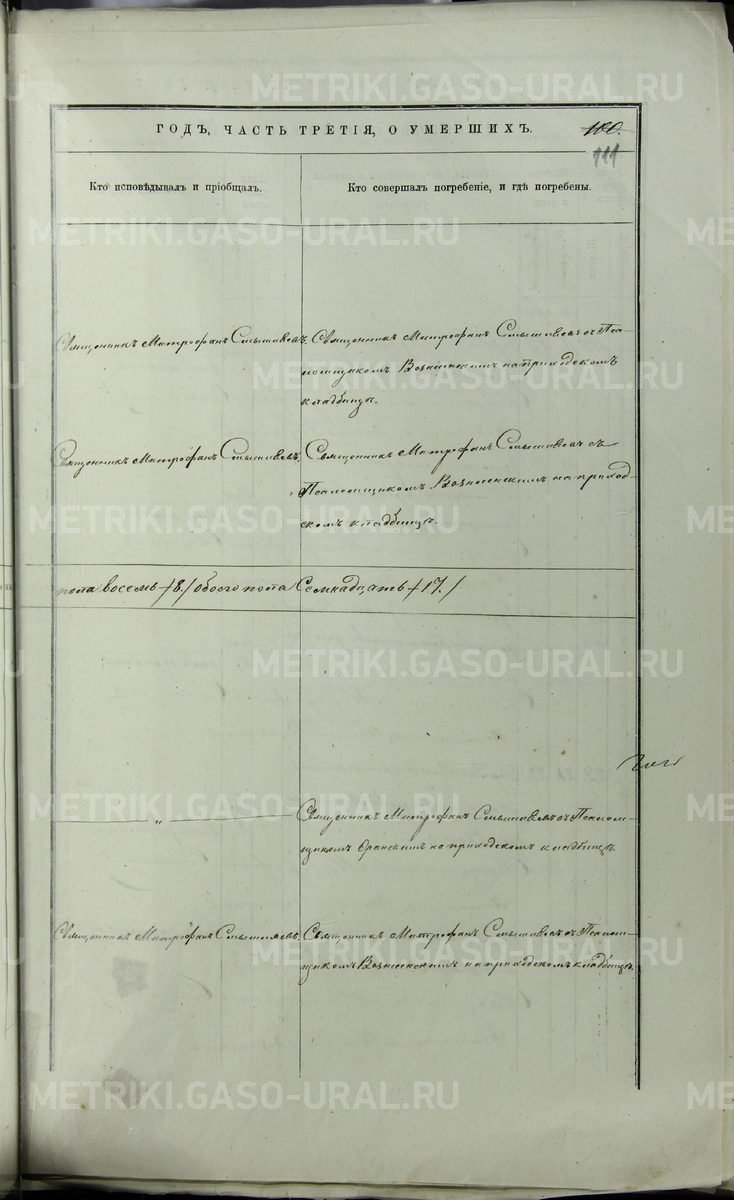 METRIKI.GASO-URAL.RU
ГОДЪ, ЧАСТЬ ТРЕТІЯ, О УМЕРШИХЪ.
180.
111
Кто исповѣдывалъ и пріобщалъ.
Кто совершалъ погребеніе, и гдѣ погребены.
Священникъ Митрофанъ
Священникъ Митрофанъ съ Пса-
ломщикомъ Вознесенскимъ на приходскомъ
кладбищѣ.
Священникъ Митрофанъ
Священникъ Митрофанъ съ
Псаломщикомъ Вознесенскимъ на приход-
скомъ кладбищѣ.
пола восемь /8./ обоего пола Семнадцать /17./
"
Священникъ Митрофанъ съ Псалом-
щикомъ на приходскомъ кладбищѣ.
Священникъ Митрофанъ
Священникъ Митрофанъ съ Псалом-
щикомъ Вознесенскимъ на приходскомъ кладбищѣ.